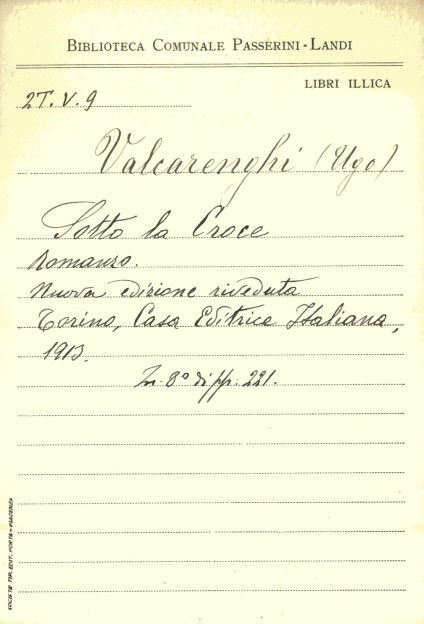 BIBLIOTECA COMUNALE PASSERINI-LANDI
LIBRI ILLICA
2T.V.9
Valcarenghi (Ugo)
Sotto la Croce
Romanzo.
Nuova edizione riveduta
Torino, Casa Editrice Italiana,
1913.
In 8º di pp. 221.
SOCIETÀ TIP. EDIT. PORTA - PIACENZA